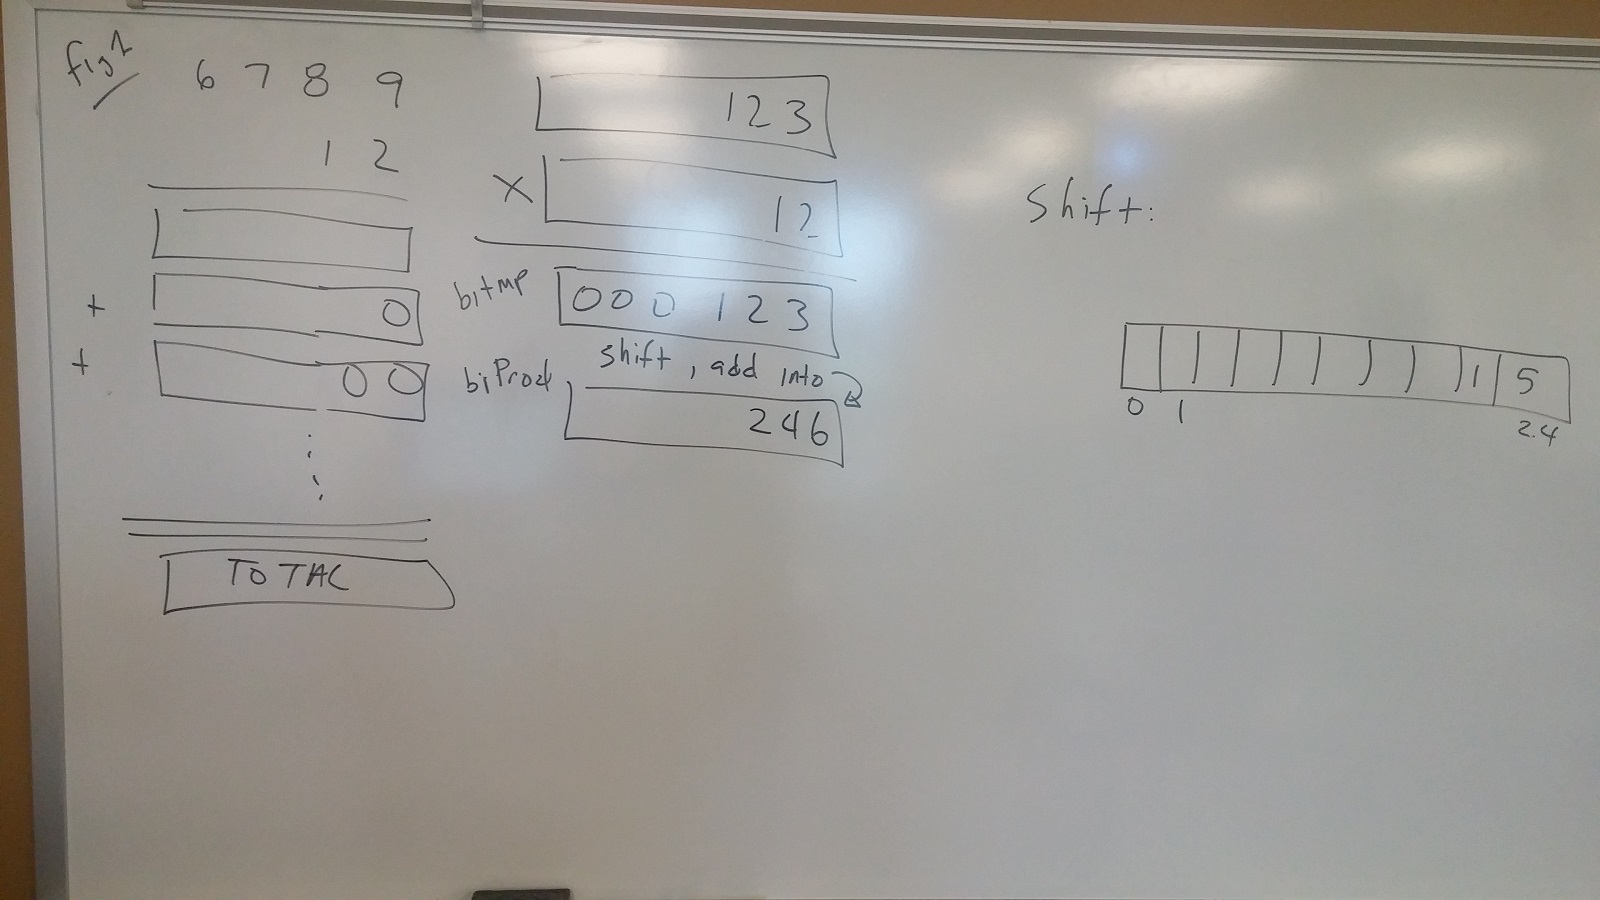 fig 1
6 7 8 9
1 2
0
+
0 0
+
TOTAL
123
X
12
bitmp
000 123
shift, add into
biProd
246
Shift:
1 5
0 1
24